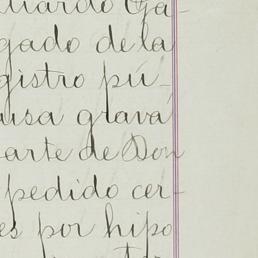 gado de la
gistro pú-
usa grava
parte de Don
pedido cer-
es por hipo